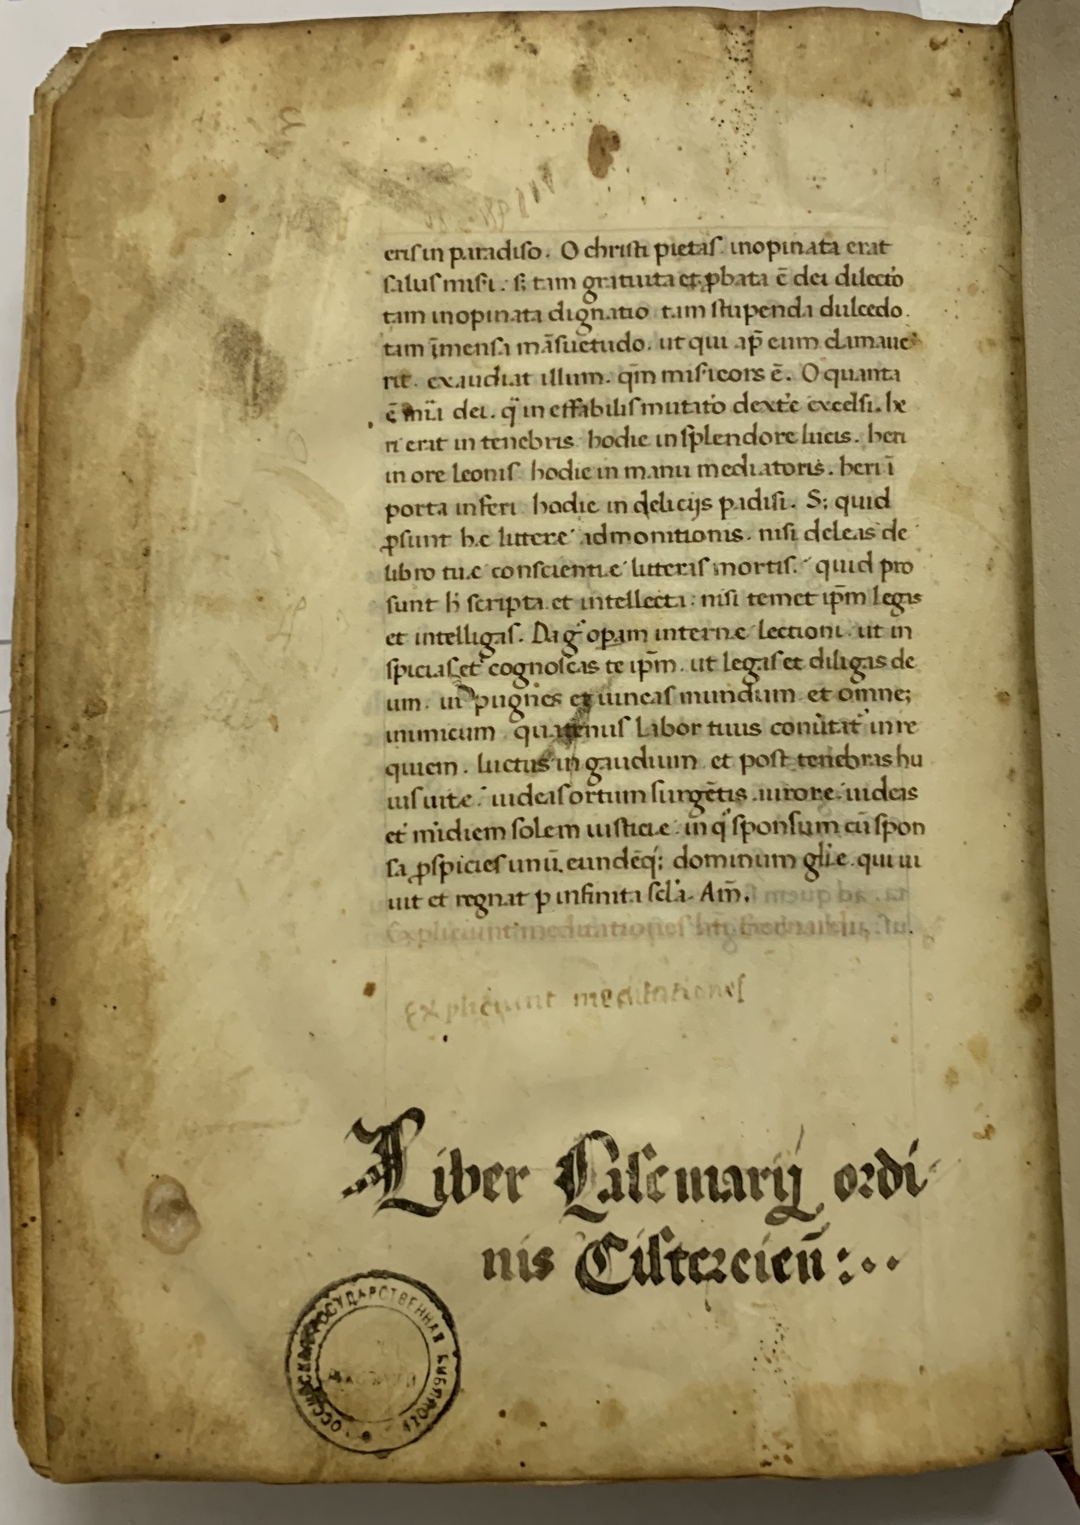 eris in paradiso. O christi pietas. inopinata erat
salus misi. s; tam gratuita et ꝓbata ē dei dilectō
tam inopinata dignatio tam stupenda dulcedo.
tam īmensa māsuetudo. ut qui ap̄ eum clamaue
rit. exaudiat illum. qm̄ misicors ē. O quanta
ē mīa dei. q̄ in effabilis mutatō dextē excelsi. he
ri erat in tenebris hodie in splendore lucis. heri
in ore leonis hodie in manu mediatoris. heri ī
porta inferi hodie in delicijs padisi. S; quid
ꝓsunt hec littere admonitionis. nisi deleas de
libro tue conscientie litteris mortis. quid pro
sunt h̄ scripta et intellecta. nisi temet ip̄m legas
et intelligas. Da gͦ opam interne lectioni. ut in
spicias et cognoscas te ip̄m. ut legas et diligas de
um. ut pugnes et uincas mundum et omne;
inimicum quatenus labor tuus conūtat in re
quiem. luctus in gaudium et post tenebras hu
ius uite. uideas ortum surgētis aurore. uideas
et mīdiem solem iusticie. in qͦ sponsum cū spon
sa ꝓspicies unū. eundēq; dominum glīe. qui ui
uit et regnat p infinita sclā. Am̄.
Expliciunt meditationes
Expliciunt meditationes
Liber Casemarij ordi
nis Cistercien̄:..
РОССИЙСКАЯ ГОСУДАРСТВЕННАЯ БИБЛИОТЕКА